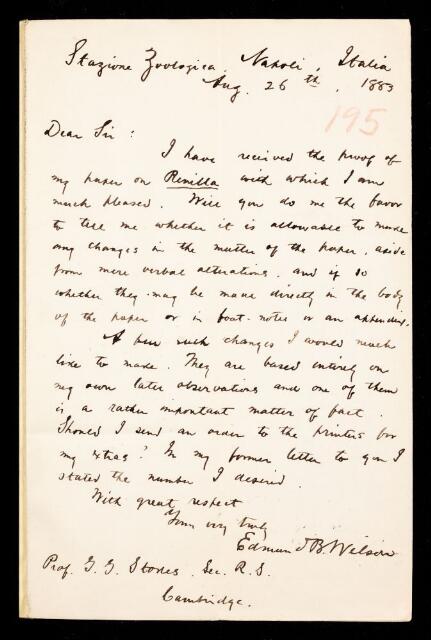 Stazione Zoologica, Napoli, Italia
Aug. 26th, 1883
195
Dear Sir:
I have received the proof of
my paper on Renilla with which I am
much pleased. Will you do me the favor
to tell me whether it is allowable to make
any changes in the matter of the paper, aside
from mere verbal alterations, and if so
whether they may be made directly in the body
of the paper or in foot-notes or an appendix.
A few such changes I would much
like to make. They are based entirely on
my own later observations and one of them
is a rather important matter of fact.
Should I send an order to the printers for
my extras? In my former letter to you I
stated the number I desired.
With great respect
Yours very truly
Edmund B. Wilson
Prof. G. G. Stokes. Sec. R. S.
Cambridge.